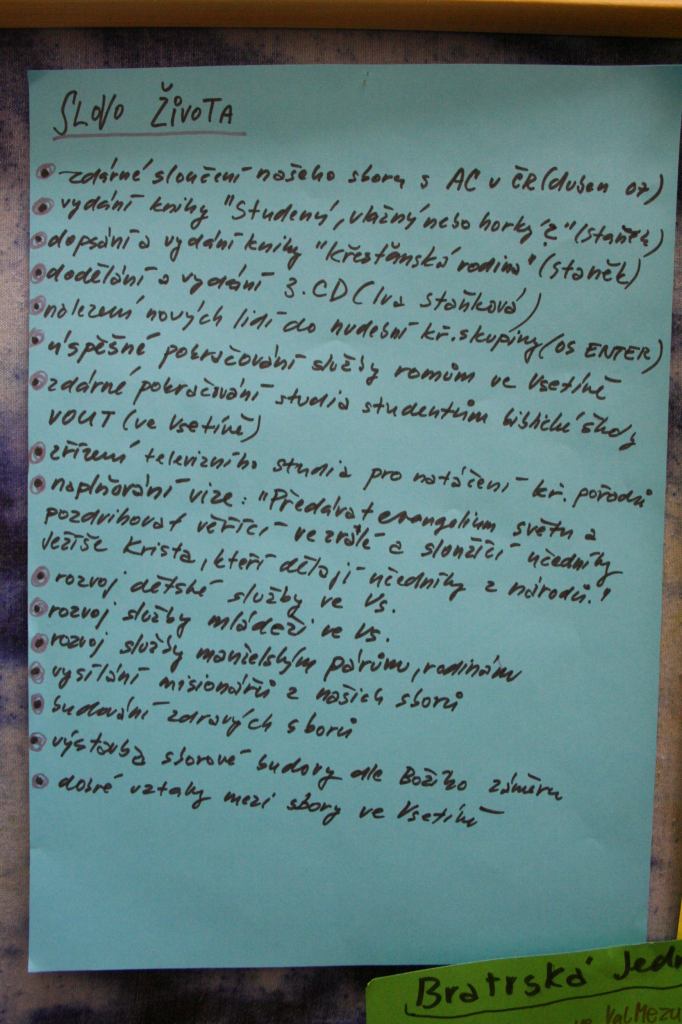 SLOVO ŽIVOTA
• zdárné sloučení našeho sboru s AC v ČR (duben 07)
• vydání knihy "Studený, vlažný nebo horký?" (Staněk)
• dopsání a vydání knihy "Křesťanská rodina" (Staněk)
• dodělání a vydání 3. CD (Iva Staňková)
• nalezení nových lidí do hudební kř. skupiny (OS ENTER)
• úspěšné pokračování služby romům ve Vsetíně
• zdárné pokračování studia studentům biblické školy
VOUT (ve Vsetíně)
• zřízení televizního studia pro natáčení kř. pořadů
• naplňování vize: "Předávat evangelium světu a
pozdvihovat věřící ve zralé a sloužící učedníky
Ježíše Krista, kteří dělají učedníky z národů."
• rozvoj dětské služby ve Vs.
• rozvoj služby mládeži ve Vs.
• rozvoj služby manželským párům, rodinám
• vysílání misionářů z našich sborů
• budování zdravých sborů
• výstavba sborové budovy dle Božího záměru
• dobré vztahy mezi sbory ve Vsetíně
Bratrská Jed
ValMezu